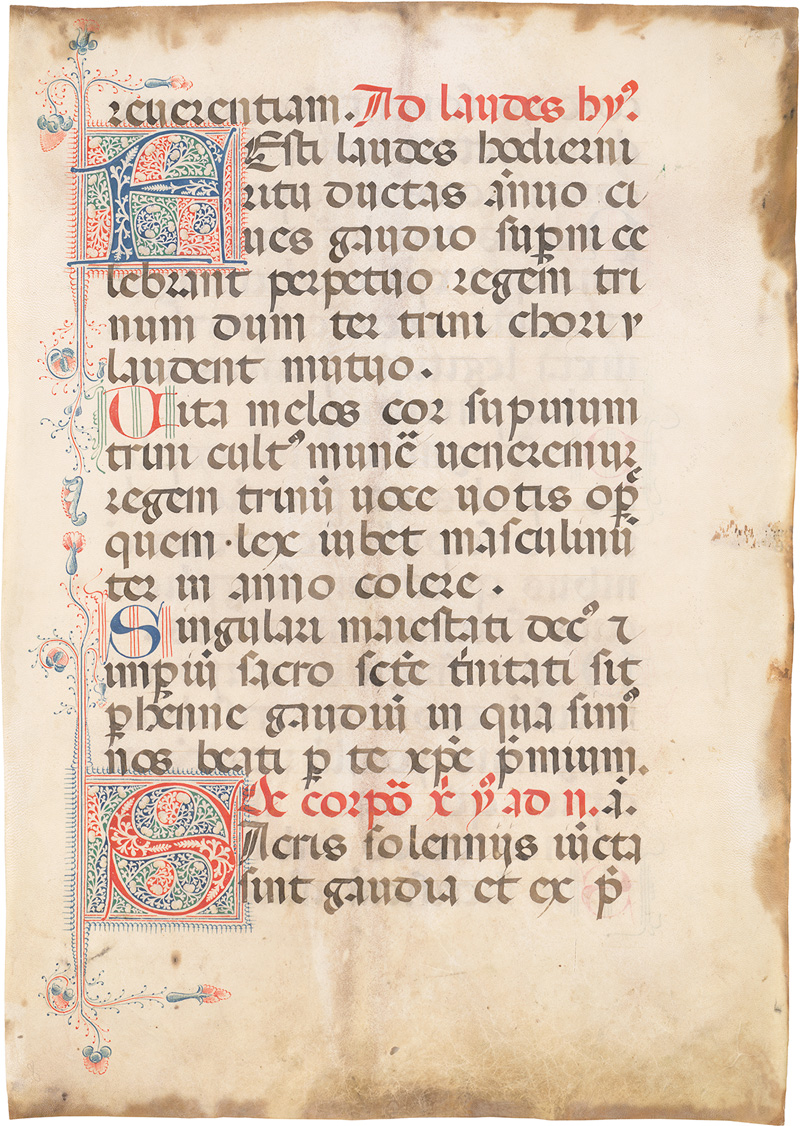 reuerentiam. Ad laudes hy⁹.
FEsti laudes hodierni
ritu ductas ãnuo ci
ues gaudio sup̱ni ce
lebrant perpetuo regem tri
num dum ter trini chori y
laudent mutuo.
Uita melos cor sup̱inum
trini cult⁹ munẽ ueneremur
regem trinũ uoce uotis op̱e
quem·lex iubet masculinũ
ter in anno colere.
Singulari maiestati dec⁹ ⁊
imp̱iũ sacro scẽ tⁱnitati sit
p̱henne gaudiũ in qua simꝰ
nos beati p̱ te xp̃e p̃mium.
De corpõ x̃ y⁹ ad n. ã.
SAcris solennijs uicta
sint gaudia et ex p̃